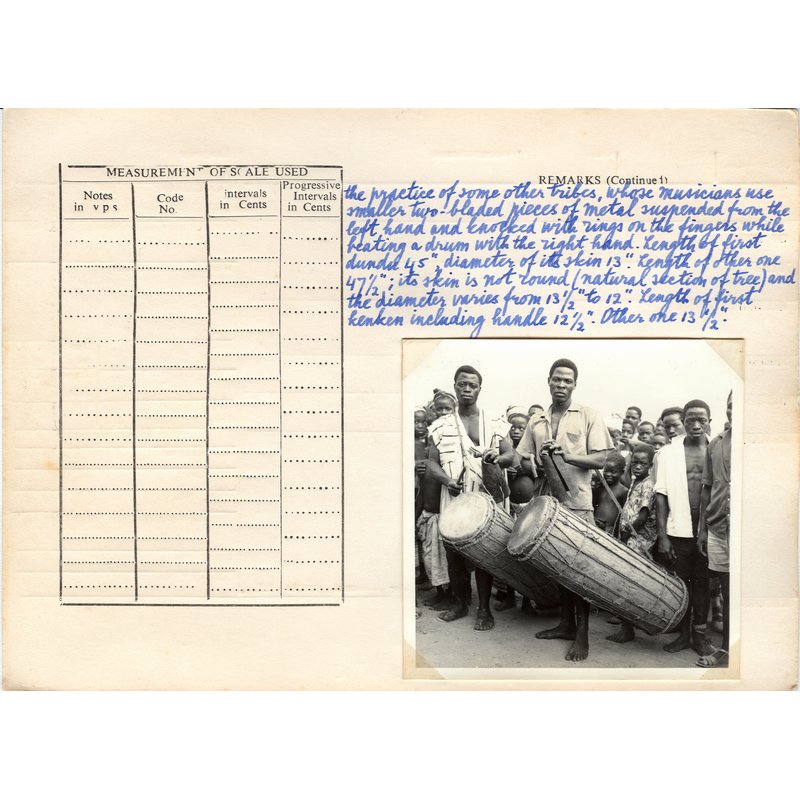 MEASUREMENT OF SCALE USED
Notes
in v p s
Code
No.
Intervals
in Cents
Progressive
Intervals
in Cents
REMARKS (Continued)
the practice of some other tribes, whose musicians use
smaller two-bladed pieces of metal suspended from the
left hand and knocked with rings on the fingers while
beating a drum with the right hand. Length of first
dundu 45", diameter of its skin 13". Length of other one
47½"; its skin is not round (natural section of tree) and
the diameter varies from 13½" to 12". Length of first
kenken including handle 12½". Other one 13½".